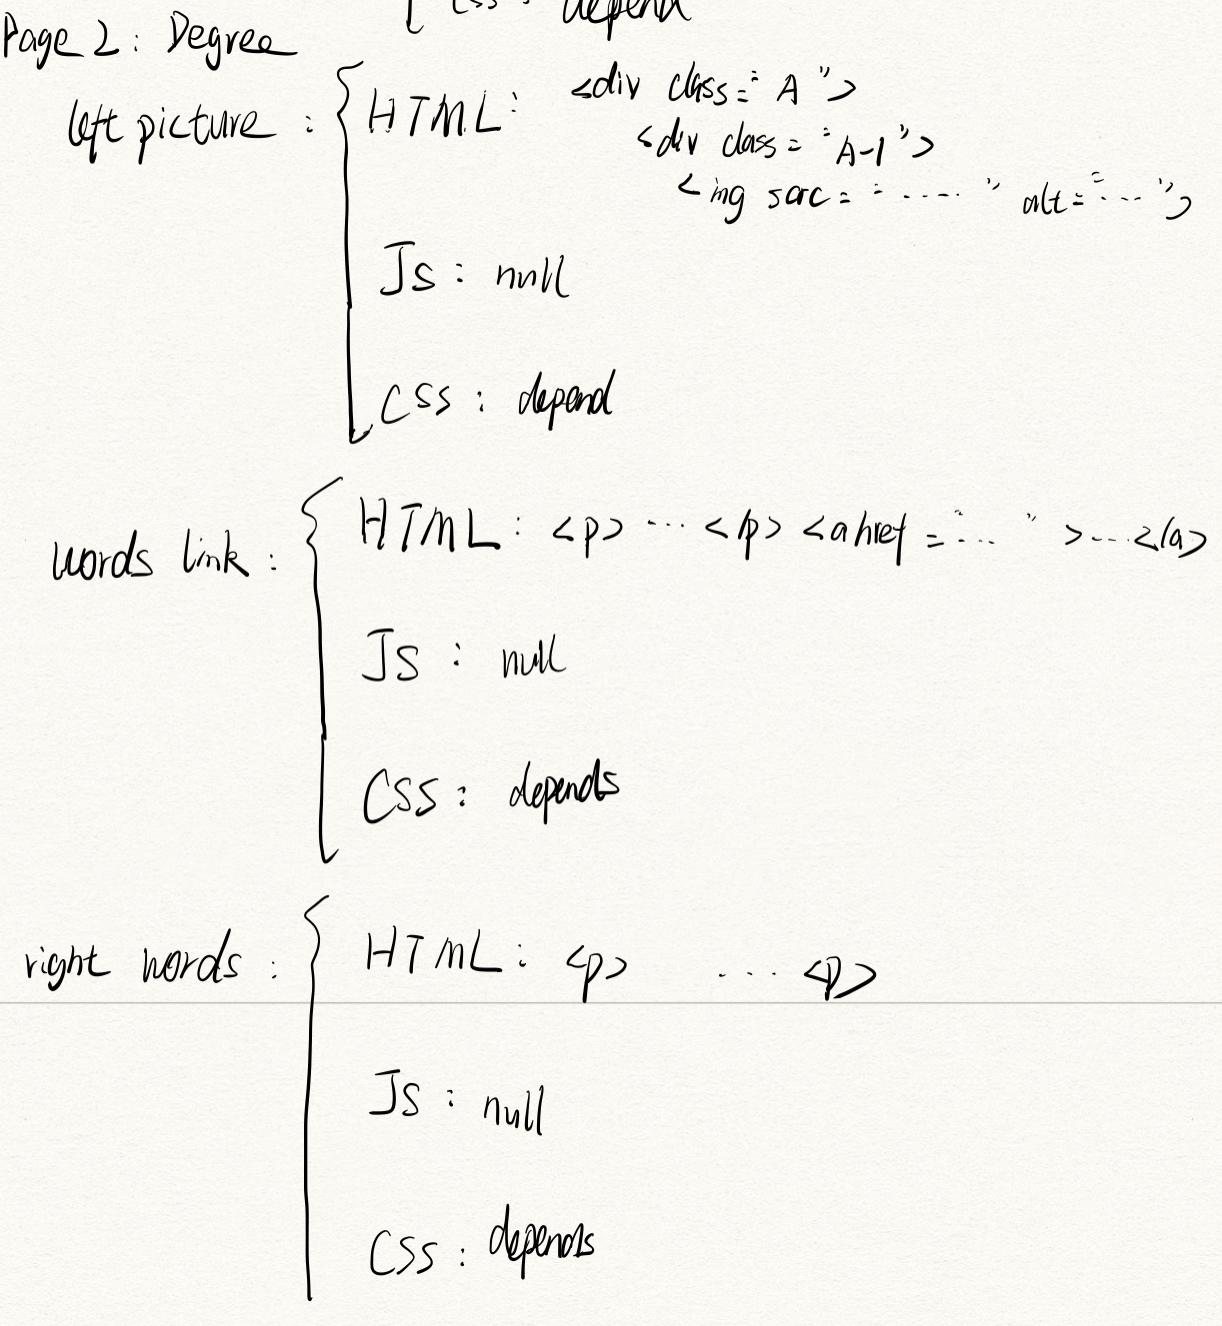 CSS : depend
Page 2 : Degree
left picture : HTML : <div class = "A">
<div class = "A-1">
<img sarc = "....." alt = "...">
JS : null
CSS : depend
words link : HTML : <p> ... </p> <a href = "... " > ... </a>
JS : null
CSS : depends
right words : HTML : <p> .... <p>
JS : null
CSS : depends